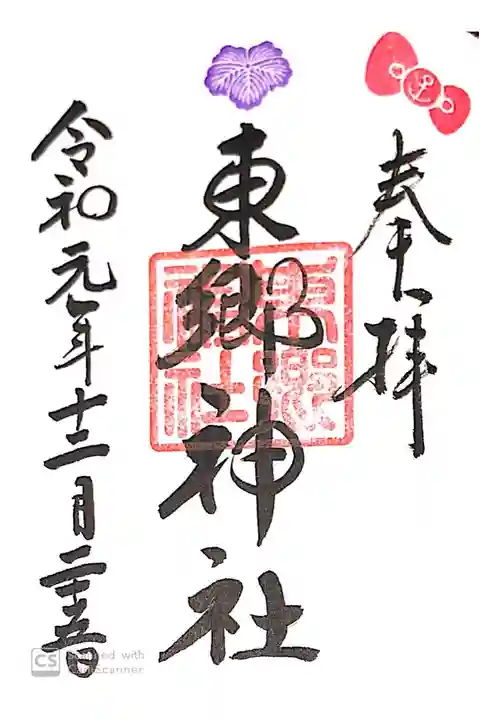 奉拝
東郷神社
東郷神社
令和元年十二月二十五日
CS Scanned with
CamScanner